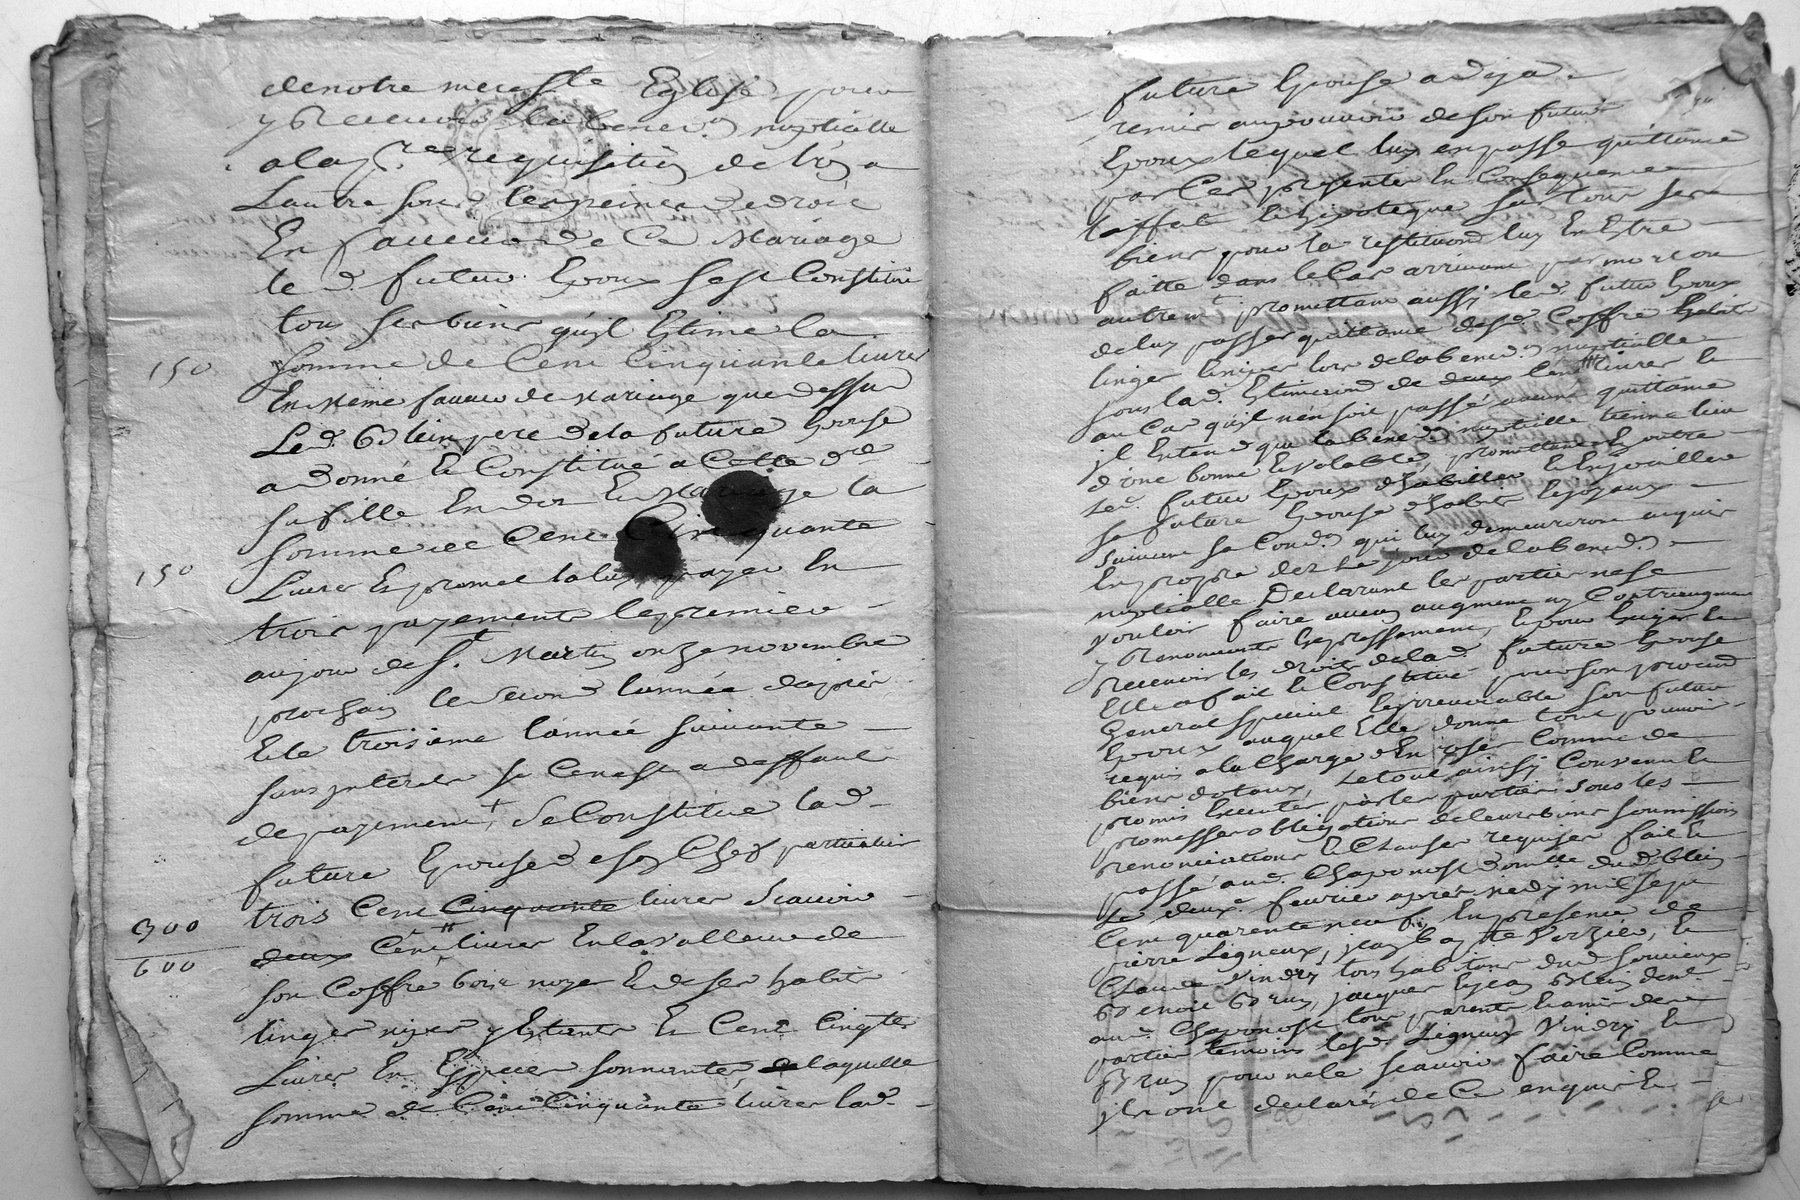 denotre mere Ste Eglise pour
y Recevoir la bened.on nuptialle
a la p.re requisition de l'un a
L'autre sous les peines de droit
En faveur de Ce Mariage
le d. futur Epoux sest Constitué
tous ses biens qu'il Estime la
150 Somme de Cent Cinquante livres
En Meme faveur de Mariage que dessus
Led. Blein pere de la future Epouse
a donné Et Constitué a Cette de
sa fille En dot Et Mariage la
somme de Cent Cinquante
150 Livres Et promet la luy payer En
trois payements le premier
au jour de St Martin onze novembre
prochain le second l'année d'apres
Et le troisieme l'année suivante
sans interets si Ce nest a deffaut
de payement, Se Constitue lad.
future Epouse de son Chef particulier
300 trois Cent Cinquante livres Scavoir
600 deux Cent livres En la valleur de
son Coffre bois noyer Et de ses habits
linges nipes y Estants Et Cent Cinq.te
Livres En Especes sonnantes de laquelle
somme de Cent Cinquante livres lad.
future Epouse a deja
remis au pouvoir de son futur
Epoux lequel luy en passe quittance
par Ces presentes En Consequence
laffat Et hipoteque sur tous ses
biens pour la restitution luy En Estre
faitte dans le Cas arrivant par mort ou
autrem.t promettant aussy led. futur Epoux
de luy passer quittance desd. Coffre habits
linges linipes lors de la bened.on nuptialle
sous lad. Estimation de deux Cent livres Et
au Cas qu'il n'en soit passé aucune quittance
jl Entend que la bened.on nuptialle tienne lieu
d'une bonne Et valable, promettant En outre
led. futur Epoux d'habiller Et Enjoailler
sa future Epouse d'habits Et joyaux
suivant sa Cond.on qui luy demeureront acquis
En propre des Le jour de la bened.on
nuptialle Declarant les parties ne se
vouloir faire aucun augment ny Contreaugment
y Renoncants Expressement, Et pour Exiger Et
Recevoir les droits de lad. future Epouse
Elle a fait Et Constitué pour son procur.
General special Et jrrevocable son futur
Epoux auquel Elle donne tout pouvoir
requis a la Charge d'En user Comme de
biens dotaux, Le tout ainsy Convenu Et
promis Executer par les parties sous les
promesses obligations de leurs biens soumissions
renonciations Et Clauses requises fait Et
passé aud. Chaponost domicille dud. Blein
Le deux.e fevrier apres midy mil sept
Cent quarente neuf, En presence de
pierre Ligneux, de Verzieu, Et
Claude Vindry, tous habitans dud.
Benoit Brun, jacques Blein
aud. Chaponost tous parents Et amis des
parties temoins lesd. Ligneux Vindry Et
Brun pour ne le scavoir faire Comme
jls ont declaré de Ce enquis Et